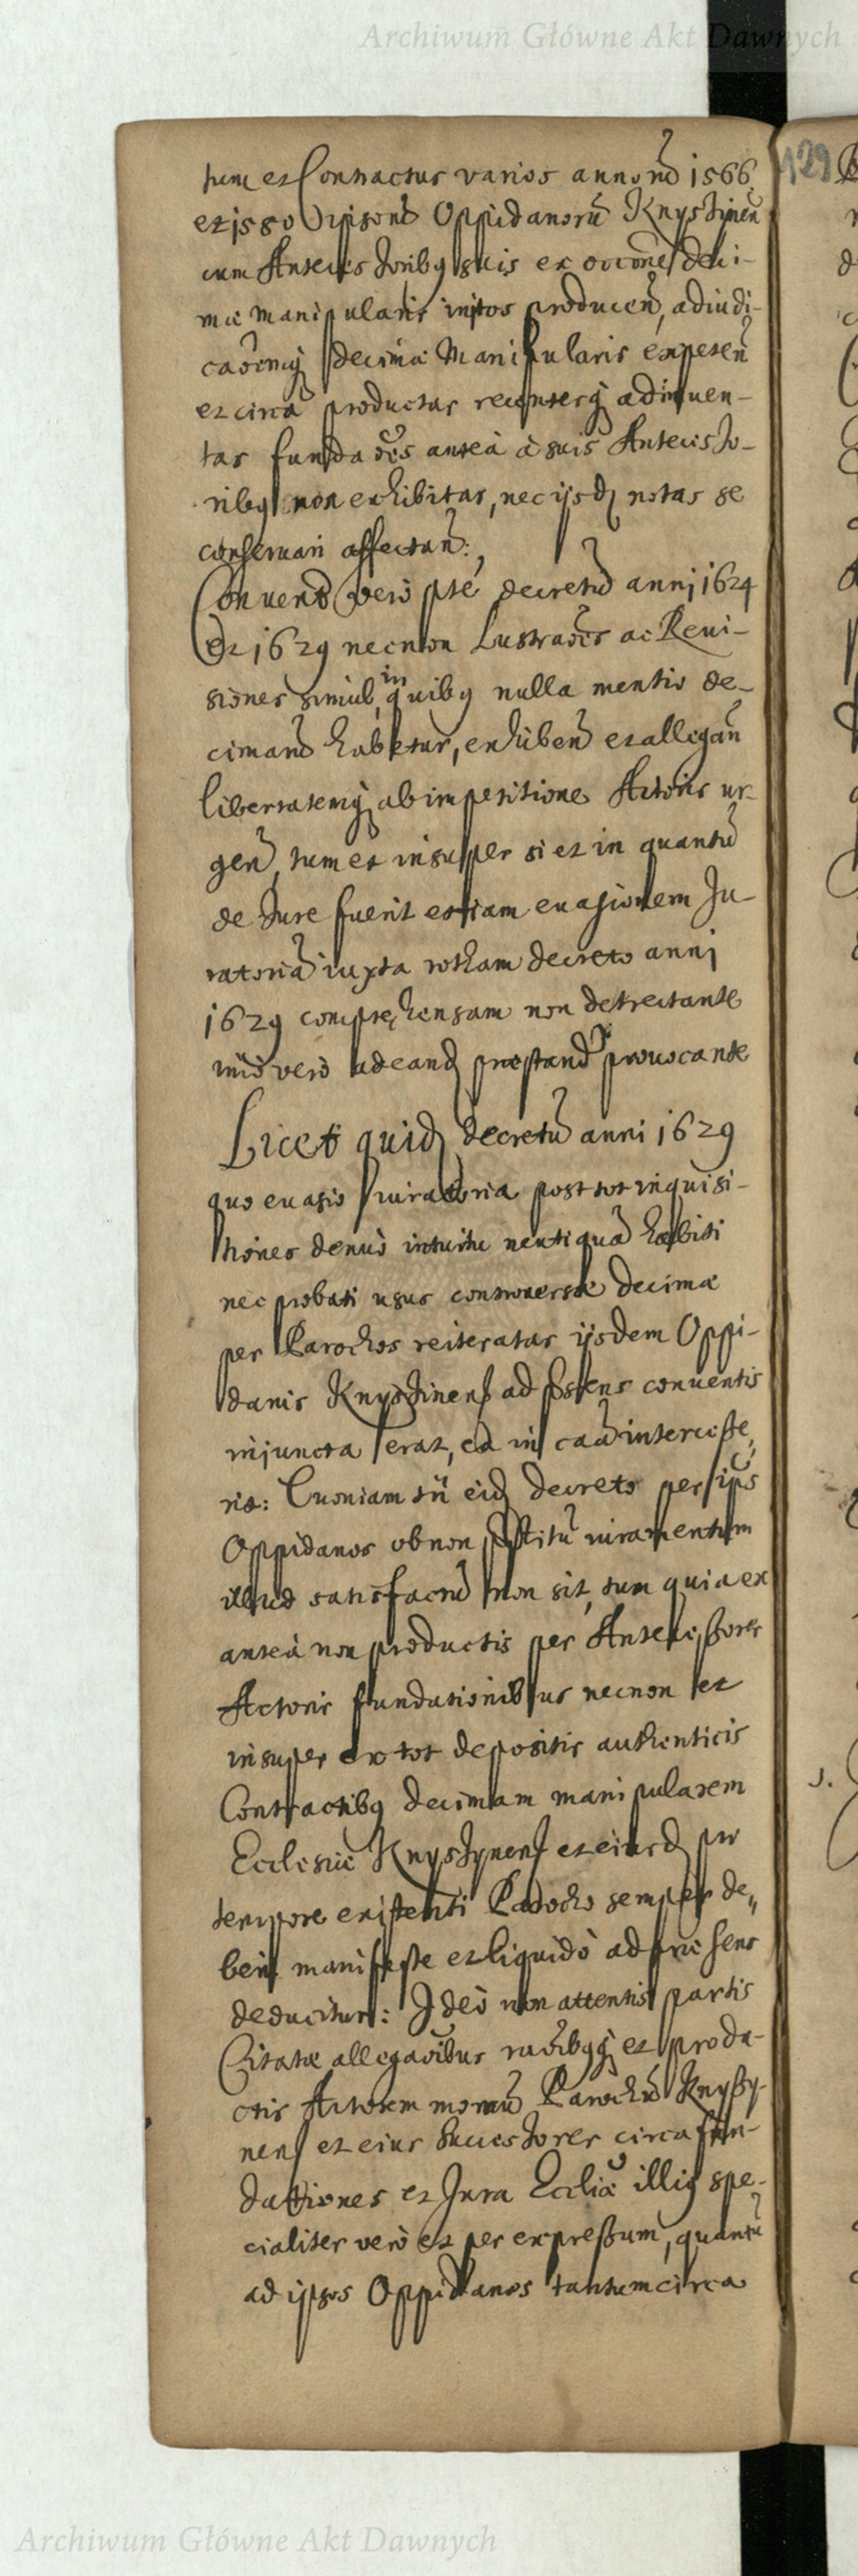 Archiwum Główne Akt Dawnych
129
tum et Contractus varios annorũ 1566
et 1580 Oppidanorũ Knyszineñ
cum Antecessoribq suis ex occõne deci-
mæ manipularis initos produceñ, adiudi-
caõemq decimæ Manipularis expeteñ
et circa productas recenterq adinuen-
tas fundaões anteà à suis Antecesso-
ribq non exhibitas, nec ijsdq notas se
conseruari affectañ:
Conuento verò pte decretũ anni 1624
et 1629 necnon Lustraões ac Reui-
siones simul, in quibq nulla mentio de-
cimarũ habetur, exhibeñ et allegañ
libertatemq ab impetitione Actoris ur-
geñ, tum et insuper si et in quantũ
de Jure fuerit etiam euasionem Ju-
ratoriã iuxta rotham decreto anni
1629 comprehensam non detrectante
imò verò ad eandq præstandã prouocante
Licet quidq decretũ anni 1629
quo euasio iuratoria post tot inquisi-
tiones denuò intuitu nentiquã habiti
nec probati usus controuersæ decimæ
per Parochos reiteratas ijsdem Oppi-
danis Knyszinenſ ad pstens conuentis
injuncta erat, ea in caã intercesse,
rit: Quoniam tñ eidq decreto per ipõs
Oppidanos ob non pstitũ iuramentum
illud satisfactũ non sit, tum quia ex
anteà non productis per Antecessores
Actoris fundationibus necnon et
insuper ex tot depositis authenticis
Contractibq decimam manipularem
Ecclesiæ Knyszynenſ et eiusdq pro
tempore existenti Parocho semper de„
beri manifeste et liquidò ad præsens
deducitur: Ideò non attentis partis
Citatæ allegaõibus raõibqq et produ-
ctis Actorem mornũ Parochũ Knyszy-
nenſ et eius Successores circa fun-
dationes et Jura Eccliæ illiq spe-
cialiter verò et per expressum, quantũ
ad ipsos Oppidanos tantum circa
Archiwum Główne Akt Dawnych